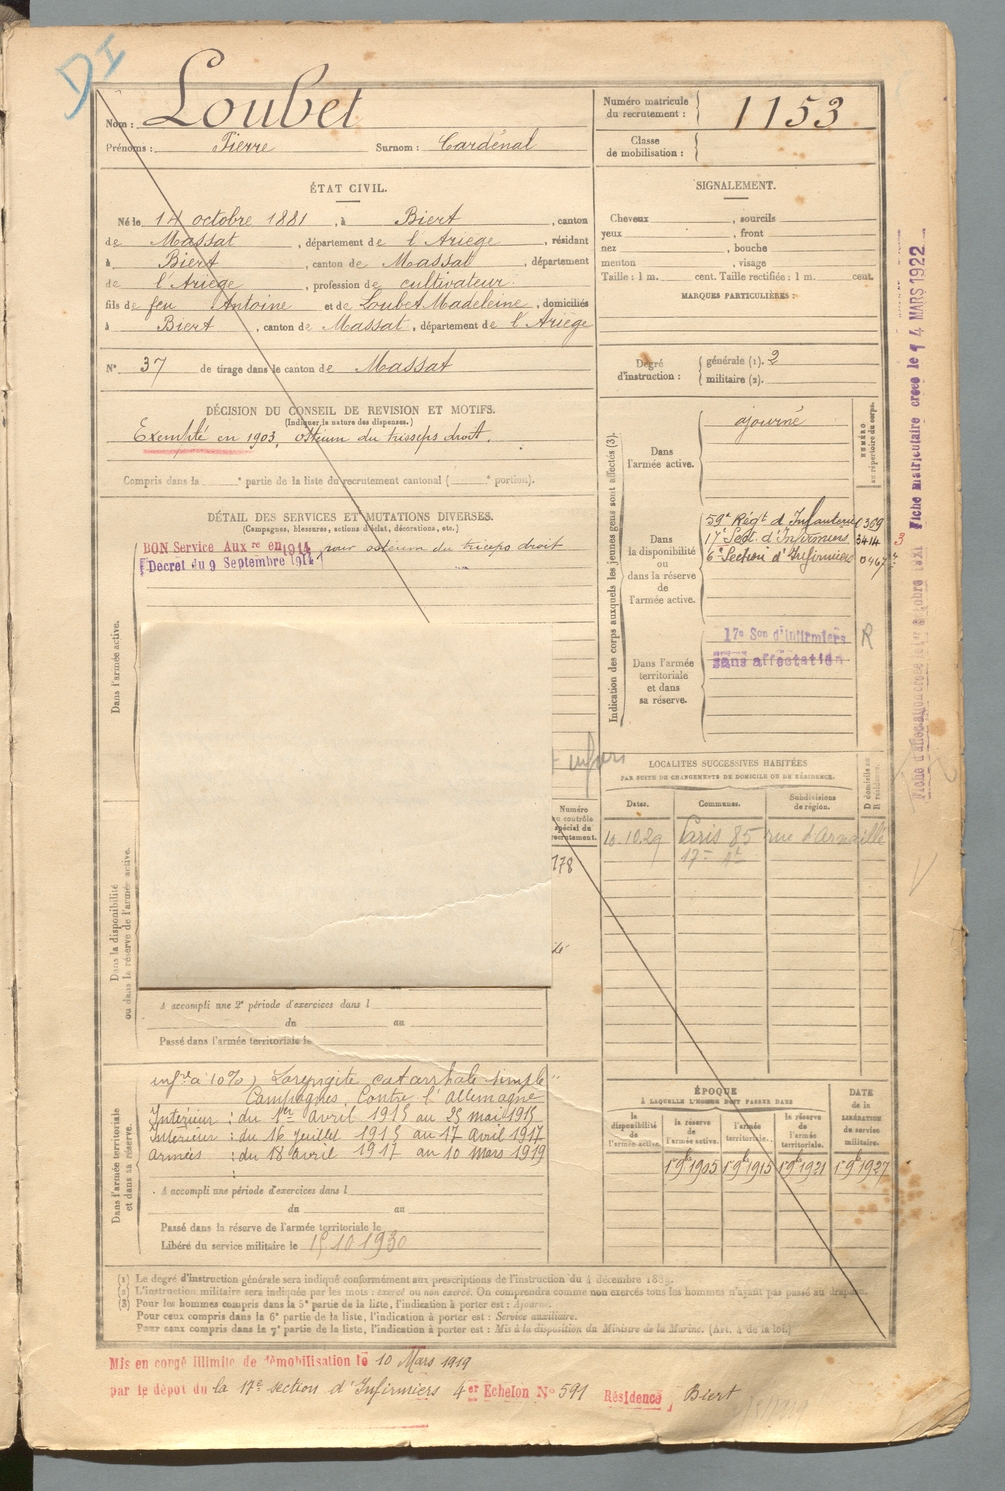 DI
Nom : Loubet
Prénoms : Pierre Surnom : Cardénal
Numéro matricule du recrutement : 1153
Classe de mobilisation :
ÉTAT CIVIL.
Né le 14 octobre 1881, à Biert, canton
de Massat, département de l'Ariège, résidant
à Biert, canton de Massat, département
de l'Ariège, profession de cultivateur
fils de feu Antoine et de Loubet Madeleine, domiciliés
à Biert, canton de Massat, département de l'Ariège
N° 37 de tirage dans le canton de Massat
SIGNALEMENT.
Cheveux , sourcils
yeux , front
nez , bouche
menton , visage
Taille : 1 m. cent. Taille rectifiée : 1 m. cent.
MARQUES PARTICULIÈRES :
Degré d'instruction :
générale (1). 2
militaire (2).
DÉCISION DU CONSEIL DE REVISION ET MOTIFS.
(Indiquer la nature des dispenses.)
Exempté en 1903, Osteum du trisseps droit.
Compris dans la e partie de la liste du recrutement cantonal ( e portion).
DÉTAIL DES SERVICES ET MUTATIONS DIVERSES.
(Campagnes, blessures, actions d'éclat, décorations, etc.)
BON Service Aux re en 1914 pour osteum du triceps droit
Decret du 9 Septembre 1914
Dans l'armée active.
Dans la disponibilité
ou dans la réserve de l'armée active.
Numéro
au contrôle
spécial du
recrutement.
178
A accompli une 2e période d'exercices dans l
du au
Passé dans l'armée territoriale le
Dans l'armée territoriale
et dans sa réserve.
inf.re à 10%) Laryngite catarrhale simple
Campagnes Contre l'Allemagne
Intérieur : du 1er avril 1915 au 25 mai 1915
Intérieur : du 16 juillet 1915 au 17 avril 1917
Armées : du 18 avril 1917 au 10 mars 1919
A accompli une période d'exercices dans l
du au
Passé dans la réserve de l'armée territoriale le
Libéré du service militaire le 15 10 1930
Indication des corps auxquels les jeunes gens sont affectés (3).
NUMÉRO
au répertoire du corps.
Dans
l'armée active.
ajourné
Dans
la disponibilité
ou
dans la réserve
de
l'armée active.
59e Régt d'Infanterie 1309
17e Sect. d'Infirmiers 3414
6e Section d'Infirmiers 0467
3
Dans l'armée
territoriale
et dans
sa réserve.
17e Son d'Infirmiers
sans affectation
R
LOCALITÉS SUCCESSIVES HABITÉES
PAR SUITE DE CHANGEMENTS DE DOMICILE OU DE RÉSIDENCE.
Dates. Communes. Subdivisions de région.
D domicile ou R résidence.
10.10.29 Paris 85 rue d'Armaillé
17e Art
ÉPOQUE
À LAQUELLE L'HOMME DOIT PASSER DANS
la disponibilité de l'armée active.
la réserve de l'armée active.
l'armée territoriale.
la réserve de l'armée territoriale.
DATE de la LIBÉRATION du service militaire.
1 9bre 1905 1 9bre 1915 1 9bre 1921 1 9bre 1927
(1) Le degré d'instruction générale sera indiqué conformément aux prescriptions de l'instruction du 4 décembre 1889.
(2) L'instruction militaire sera indiquée par les mots : exercé ou non exercé. On comprendra comme non exercés tous les hommes n'ayant pas passé au drapeau.
(3) Pour les hommes compris dans la 5e partie de la liste, l'indication à porter est : Ajourné.
Pour ceux compris dans la 6e partie de la liste, l'indication à porter est : Service auxiliaire.
Pour ceux compris dans la 7e partie de la liste, l'indication à porter est : Mis à la disposition du Ministre de la Marine. (Art. 4 de la loi.)
Mis en congé illimité de démobilisation le 10 Mars 1919
par le dépôt du la 17e section d'Infirmiers 4er Echelon N° 591 Résidence Biert
Fiche matriculaire créée le 14 MARS 1922